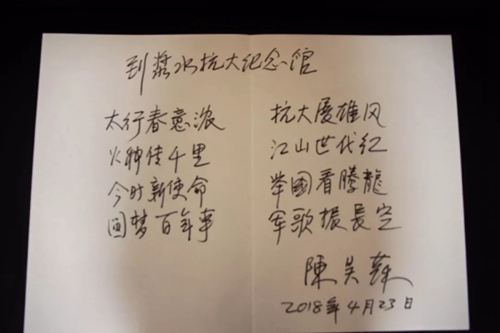 到漿水抗大纪念馆
太行春意浓 抗大展雄风
火种传千里 江山世代红
今时新使命 举國看腾龍
圆梦百年事 军歌振長空
陳昊蘇
2018年4月23日